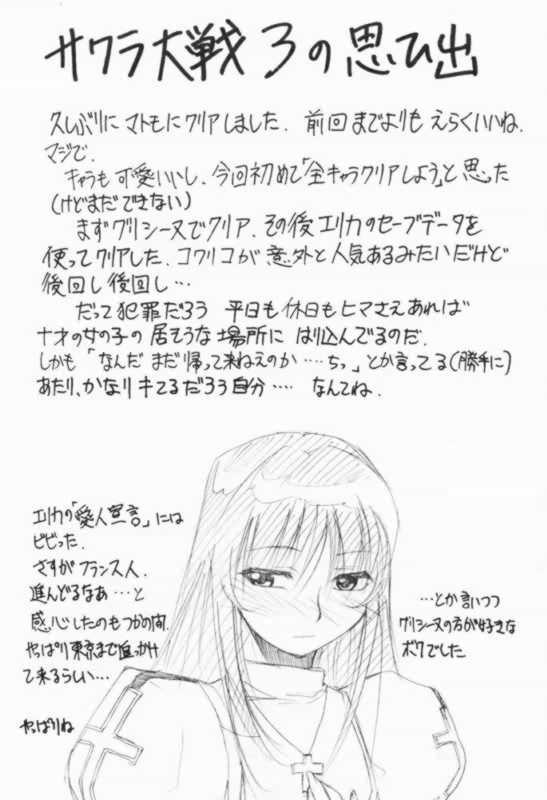 サクラ大戦3の思ひ出
久しぶりにマトモにクリアしました. 前回までよりもえらくいいね.
マジで.
キャラも可愛いいし、今回初めて「全キャラクリアしよう」と思った
(けどまだできない)
まずグリシーヌでクリア. その後エリカのセーブデータを
使ってクリアした. コワリコが意外と人気あるみたいだけど
後回し後回し…
だって犯罪だろう 平日も休日もヒマさえあれば
十才の女の子の居そうな場所に はり込んでるのだ.
しかも「なんだ まだ帰って来ねえのか ‥‥ちっ」とか言ってる(勝手に)
あたり、かなりキてるだろう自分‥‥ なんてね.
エリカの「愛人宣言」には
ビビった.
さすがフランス人.
進んどるなあ…と
感心したのもつかの間.
やっぱり東京まで追っかけ
て来るらしい…
やっぱりね
…とか言いつつ
グリシーヌの方が好きな
ボクでした